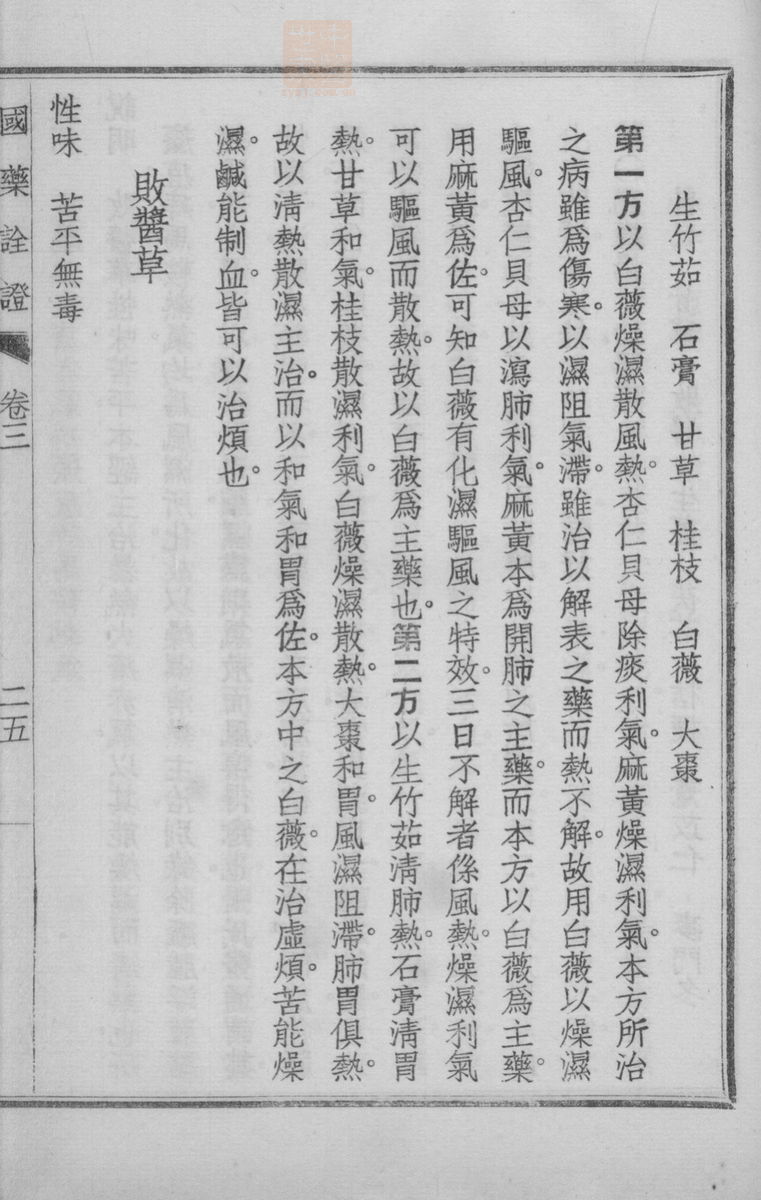 生竹茹　石膏　甘草　桂枝　白薇　大棗
第一方以白薇燥濕散風熱。杏仁貝母除痰利氣。麻黃燥濕利氣。本方所治
之病雖爲傷寒。以濕阻氣滯。雖治以解表之藥而熱不解。故用白薇以燥濕
驅風。杏仁貝母以瀉肺利氣。麻黃本爲開肺之主藥。而本方以白薇爲主藥。
用麻黃爲佐。可知白薇有化濕驅風之特效。三日不解者係風熱。燥濕利氣
可以驅風而散熱。故以白薇爲主藥也。第二方以生竹茹淸肺熱。石膏淸胃
熱。甘草和氣。桂枝散濕利氣。白薇燥濕散熱。大棗和胃。風濕阻滯。肺胃俱熱。
故以淸熱散濕主治。而以和氣和胃爲佐。本方中之白薇。在治虛煩。苦能燥
濕。鹹能制血。皆可以治煩也。
敗醬草
性味　苦平無毒
國藥詮證　卷三　二五